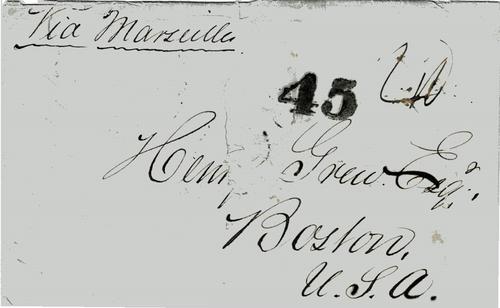 Via Marseilles
45
Henry Grew. Esqr.,
Boston,
U.S.A.